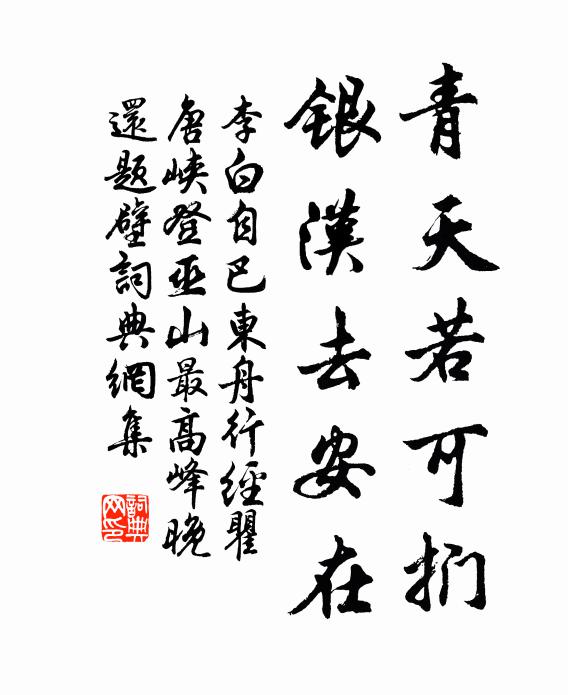 青天若可捫
銀漢去安在
李白自巴東舟行經瞿
唐峽登巫山最高峰晚
還題壁詞典網集
詞典
网印